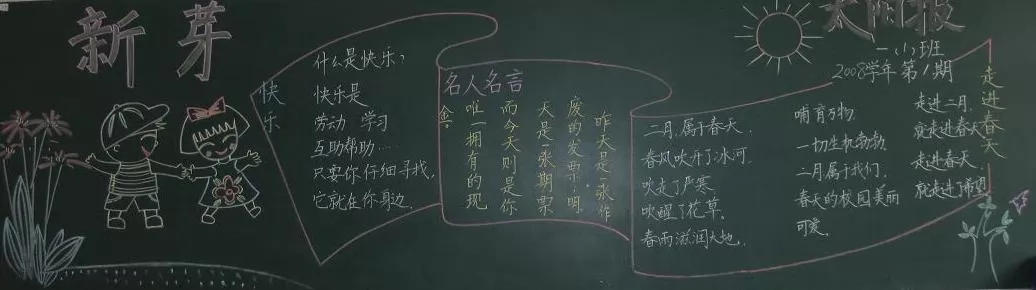 新芽
快乐
什么是快乐?
快乐是
劳动 学习
互助帮助……
只要你仔细寻找,
它就在你身边.
名人名言
昨天是一张作
废的发票,明
天是一张期票
而今天则是你
唯一拥有的现
金。
太阳报
2008学年 第1期
走进春天
二月,属于春天.
春风吹开了冰河.
吹走了严寒
吹醒了花草.
春雨滋润大地.
哺育万物.
一切生机勃勃.
二月属于我们.
春天的校园美丽
可爱.
走进二月.
就走进春天
走进春天.
就走进了希望